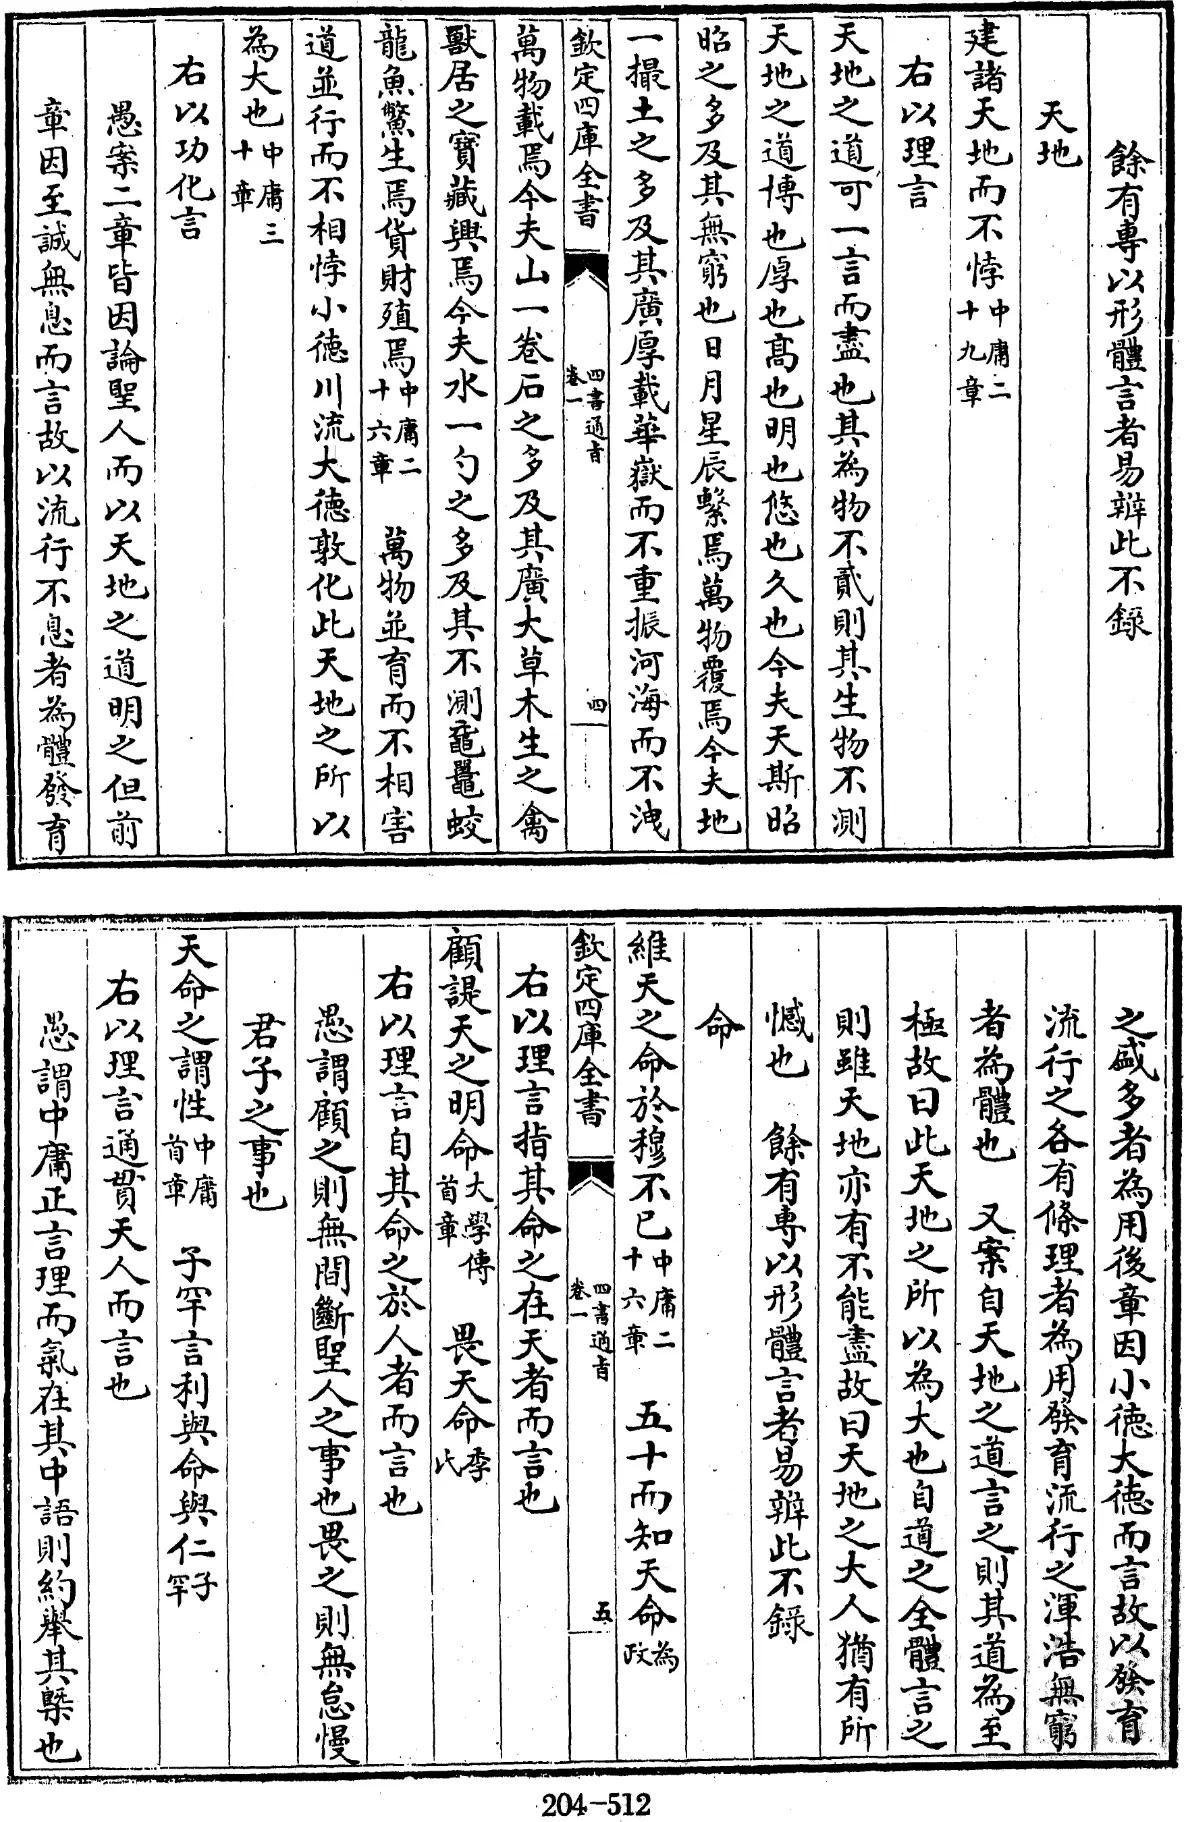 餘有專以形體言者易辨此不錄
天地
建諸天地而不悖中庸二十九章
右以理言
天地之道可一言而盡也其為物不貳則其生物不測
天地之道博也厚也髙也明也悠也久也今夫天斯昭
昭之多及其無窮也日月星辰繫焉萬物覆焉今夫地
一撮土之多及其廣厚載華嶽而不重振河海而不洩
欽定四庫全書 四書通旨 卷一 四
萬物載焉今夫山一卷石之多及其廣大草木生之禽
獸居之寶藏興焉今夫水一勺之多及其不測黿鼉蛟
龍魚鱉生焉貨財殖焉中庸二十六章 萬物並育而不相害
道並行而不相悖小德川流大德敦化此天地之所以
為大也中庸三十章
右以功化言
愚案二章皆因論聖人而以天地之道明之但前
章因至誠無息而言故以流行不息者為體發育
之盛多者為用後章因小德大德而言故以發育
流行之各有條理者為用發育流行之渾浩無窮
者為體也 又案自天地之道言之則其道為至
極故曰此天地之所以為大也自道之全體言之
則雖天地亦有不能盡故曰天地之大人猶有所
憾也 餘有專以形體言者易辨此不錄
命
維天之命於穆不已中庸二十六章 五十而知天命為政
欽定四庫全書 四書通旨 卷一 五
右以理言指其命之在天者而言也
顧諟天之明命大學傳首章 畏天命季氏
右以理言自其命之於人者而言也
愚謂顧之則無間斷聖人之事也畏之則無怠慢
君子之事也
天命之謂性中庸首章 子罕言利與命與仁子罕
右以理言通貫天人而言也
愚謂中庸正言理而氣在其中語則約舉其槩也
204-512